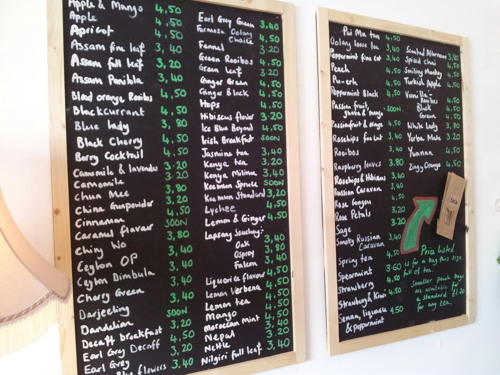 Apple & Mango 4,50
Apple 4,50
Apricot 4,50
Assam fine leaf 3,40
Assam full leaf 3,20
Assam Panihla 3,40
Blood orange Rooibos 4,50
Blackcurrant 4,50
Blue lady 3,80
Black Cherry 4,50
Berry Cocktail 4,50
Camomile & lavender 3.20
Camomile 3,20
Chun Mee 3,80
China Gunpowder 4,50
Cinnamon SOON
Caramel flavour 3,80
Ching Wo 3,40
Ceylon OP 3,40
Ceylon Dimbula 3,40
Cherry Green 3,40
Darjeeling SOON
Dandelion 3,20
Decaff breakfast 4,50
Earl Grey Decaff 4,50
Earl Grey Blue flowers 3,40
Earl Grey Green 3,40
Formosa Oolong Choice 4,50
Fennel 3.20
Green Rooibos 4,50
Green leaf 3.20
Ginger Green 4,50
Ginger Black 4,50
Hops 4,50
Hibiscus flower 3.20
Ice Blue Beyond 4,50
Irish Breakfast SOON
Jasmine tea 3,40
Kenya tea 3,20
Kenya Milima 3,40
Keemun Spruce SOON
Keemun Standard 3,20
Lychee 4,50
Lemon & Ginger 4,50
Lapsang Souchong:
Oak 3,40
Osprey 3,80
Falcon 3,40
Liquorice flavour 4,50
Lemon Verbena 4,50
Lemon tea 4,50
Mango 4,50
Moroccan Mint 3,40
Nepal 3,20
Nettle 3,20
Nilgiri full leaf 3,40
Pai Mu tea 4,50
Oolong loose tea 3,40
Peppermint fine cut 3,40
Peach 4,50
Pu-erh 4,50
Peppermint Black 4,50
Passion fruit, guava & mango SOON
Passionfruit & mango 4,50
Rosehips fine cut 3,40
Rooibos 3,40
Raspberry leaves 3.80
Rosehips & Hibiscus 3,40
Russian Caravan 3,40
Rose Congou 3,40
Rose Petals 3.20
Sage 3.20
Smoky Russian Caravan 3,40
Spring tea 4,50
Spearmint 3.60
Strawberry 4,50
Strawberry & Kiwi 4,50
Senna, liquorice & peppermint 4.50
Scented Afternoon 3,80
Spiced chai 4,50
Smiling Monkey 4,50
Turkish Apple 4,50
Vanilla:-
Rooibos 4,50
Black 4,50
Green 4,50
White lady 3,80
Yerba Mate 3.20
Yunnan 4,50
Zingy Orange 4,50
Price listed
is for a bag this size
full of tea.
Smaller pound bags
are available for
a standard £1.20
for any tea.